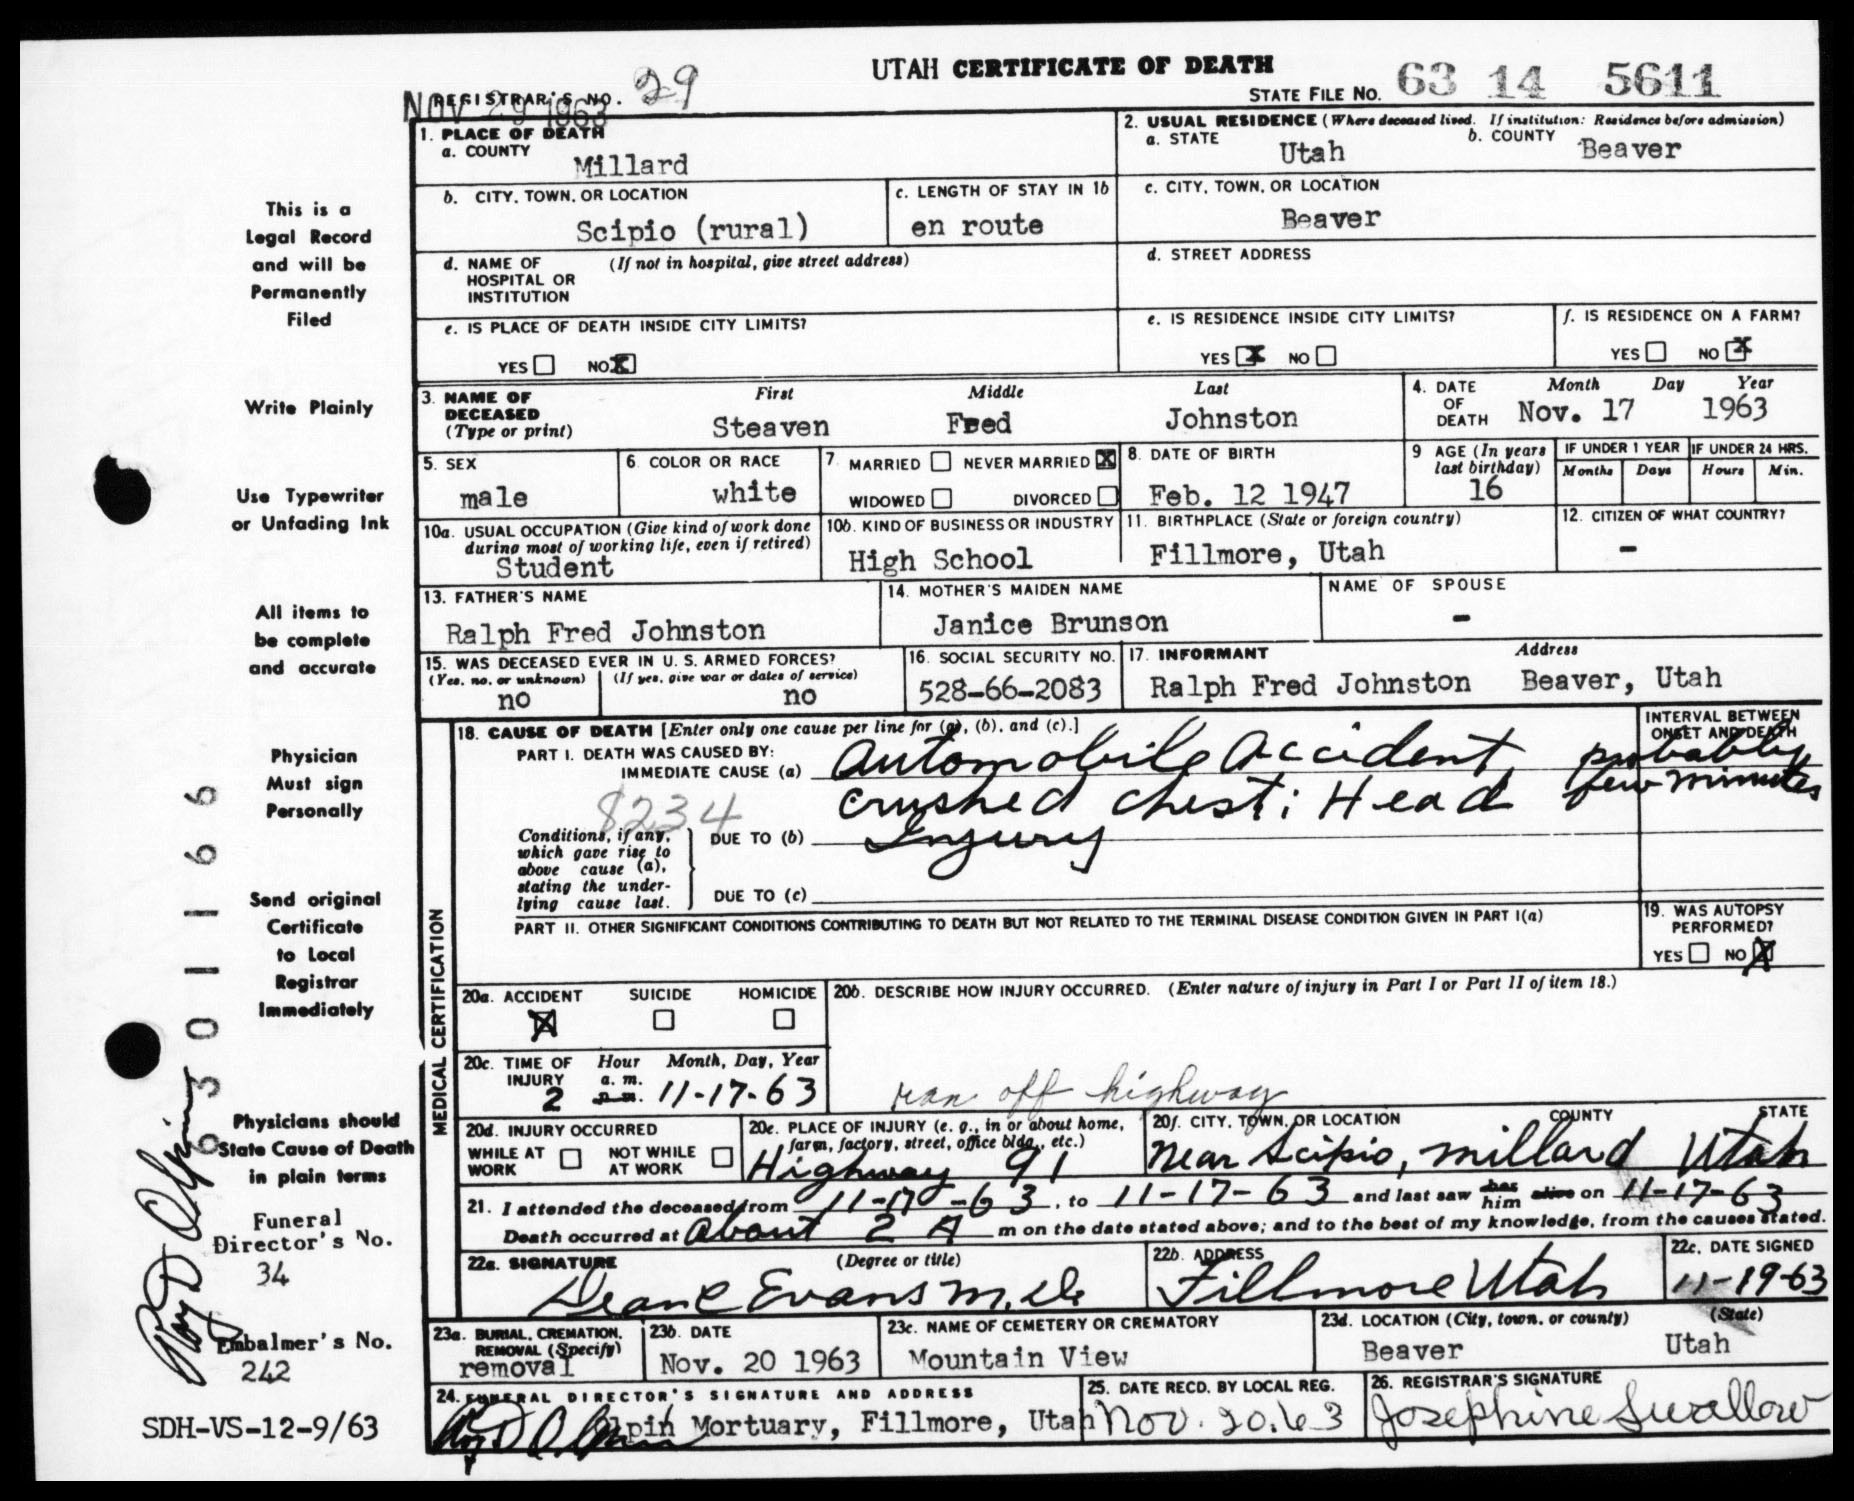 UTAH CERTIFICATE OF DEATH
REGISTRAR'S NO. 29
NOV 29 1963
STATE FILE NO. 63 14 5611
1. PLACE OF DEATH
a. COUNTY
Millard
2. USUAL RESIDENCE (Where deceased lived. If institution: Residence before admission)
a. STATE
Utah
b. COUNTY
Beaver
b. CITY, TOWN, OR LOCATION
Scipio (rural)
c. LENGTH OF STAY IN 1b
en route
c. CITY, TOWN, OR LOCATION
Beaver
d. NAME OF HOSPITAL OR INSTITUTION
(If not in hospital, give street address)
d. STREET ADDRESS
e. IS PLACE OF DEATH INSIDE CITY LIMITS?
YES NO X
e. IS RESIDENCE INSIDE CITY LIMITS?
YES X NO
f. IS RESIDENCE ON A FARM?
YES NO X
3. NAME OF DECEASED
(Type or print)
First Middle Last
Steaven Fred Johnston
4. DATE OF DEATH
Month Day Year
Nov. 17 1963
5. SEX
male
6. COLOR OR RACE
white
7. MARRIED NEVER MARRIED X
WIDOWED DIVORCED
8. DATE OF BIRTH
Feb. 12 1947
9 AGE (In years last birthday)
16
IF UNDER 1 YEAR
Months Days
IF UNDER 24 HRS.
Hours Min.
10a. USUAL OCCUPATION (Give kind of work done during most of working life, even if retired)
Student
10b. KIND OF BUSINESS OR INDUSTRY
High School
11. BIRTHPLACE (State or foreign country)
Fillmore, Utah
12. CITIZEN OF WHAT COUNTRY?
-
13. FATHER'S NAME
Ralph Fred Johnston
14. MOTHER'S MAIDEN NAME
Janice Brunson
NAME OF SPOUSE
-
15. WAS DECEASED EVER IN U. S. ARMED FORCES?
(Yes, no, or unknown) (If yes, give war or dates of service)
no no
16. SOCIAL SECURITY NO.
528-66-2083
17. INFORMANT Address
Ralph Fred Johnston Beaver, Utah
MEDICAL CERTIFICATION
18. CAUSE OF DEATH [Enter only one cause per line for (a), (b), and (c).]
INTERVAL BETWEEN ONSET AND DEATH
PART I. DEATH WAS CAUSED BY:
IMMEDIATE CAUSE (a) Automobile Accident probably
crushed chest; Head few minutes
8234
Conditions, if any, which gave rise to above cause (a), stating the underlying cause last.
DUE TO (b) Injury
DUE TO (c)
PART II. OTHER SIGNIFICANT CONDITIONS CONTRIBUTING TO DEATH BUT NOT RELATED TO THE TERMINAL DISEASE CONDITION GIVEN IN PART I(a)
19. WAS AUTOPSY PERFORMED?
YES NO X
20a. ACCIDENT SUICIDE HOMICIDE
X
20b. DESCRIBE HOW INJURY OCCURRED. (Enter nature of injury in Part I or Part II of item 18.)
ran off highway
20c. TIME OF INJURY
Hour Month, Day, Year
2 a. m. p. m. 11-17-63
20d. INJURY OCCURRED
WHILE AT WORK NOT WHILE AT WORK
20e. PLACE OF INJURY (e. g., in or about home, farm, factory, street, office bldg., etc.)
Highway 91
20f. CITY, TOWN, OR LOCATION COUNTY STATE
Near Scipio, Millard Utah
21. I attended the deceased from 11-17-63, to 11-17-63 and last saw her him alive on 11-17-63
Death occurred at About 2 A m on the date stated above; and to the best of my knowledge, from the causes stated.
22a. SIGNATURE (Degree or title)
Dean C Evans M.D.
22b. ADDRESS
Fillmore Utah
22c. DATE SIGNED
11-19-63
23a. BURIAL, CREMATION, REMOVAL (Specify)
removal
23b. DATE
Nov. 20 1963
23c. NAME OF CEMETERY OR CREMATORY
Mountain View
23d. LOCATION (City, town, or county) (State)
Beaver Utah
24. FUNERAL DIRECTOR'S SIGNATURE AND ADDRESS
Roy D Olpin Olpin Mortuary, Fillmore, Utah
25. DATE RECD. BY LOCAL REG.
Nov. 20.63
26. REGISTRAR'S SIGNATURE
Josephine Swallow
This is a
Legal Record
and will be
Permanently
Filed
Write Plainly
Use Typewriter
or Unfading Ink
All items to
be complete
and accurate
Physician
Must sign
Personally
Send original
Certificate
to Local
Registrar
Immediately
Physicians should
State Cause of Death
in plain terms
Funeral
Director's No.
34
Embalmer's No.
242
SDH-VS-12-9/63
Roy D Olpin
6301166